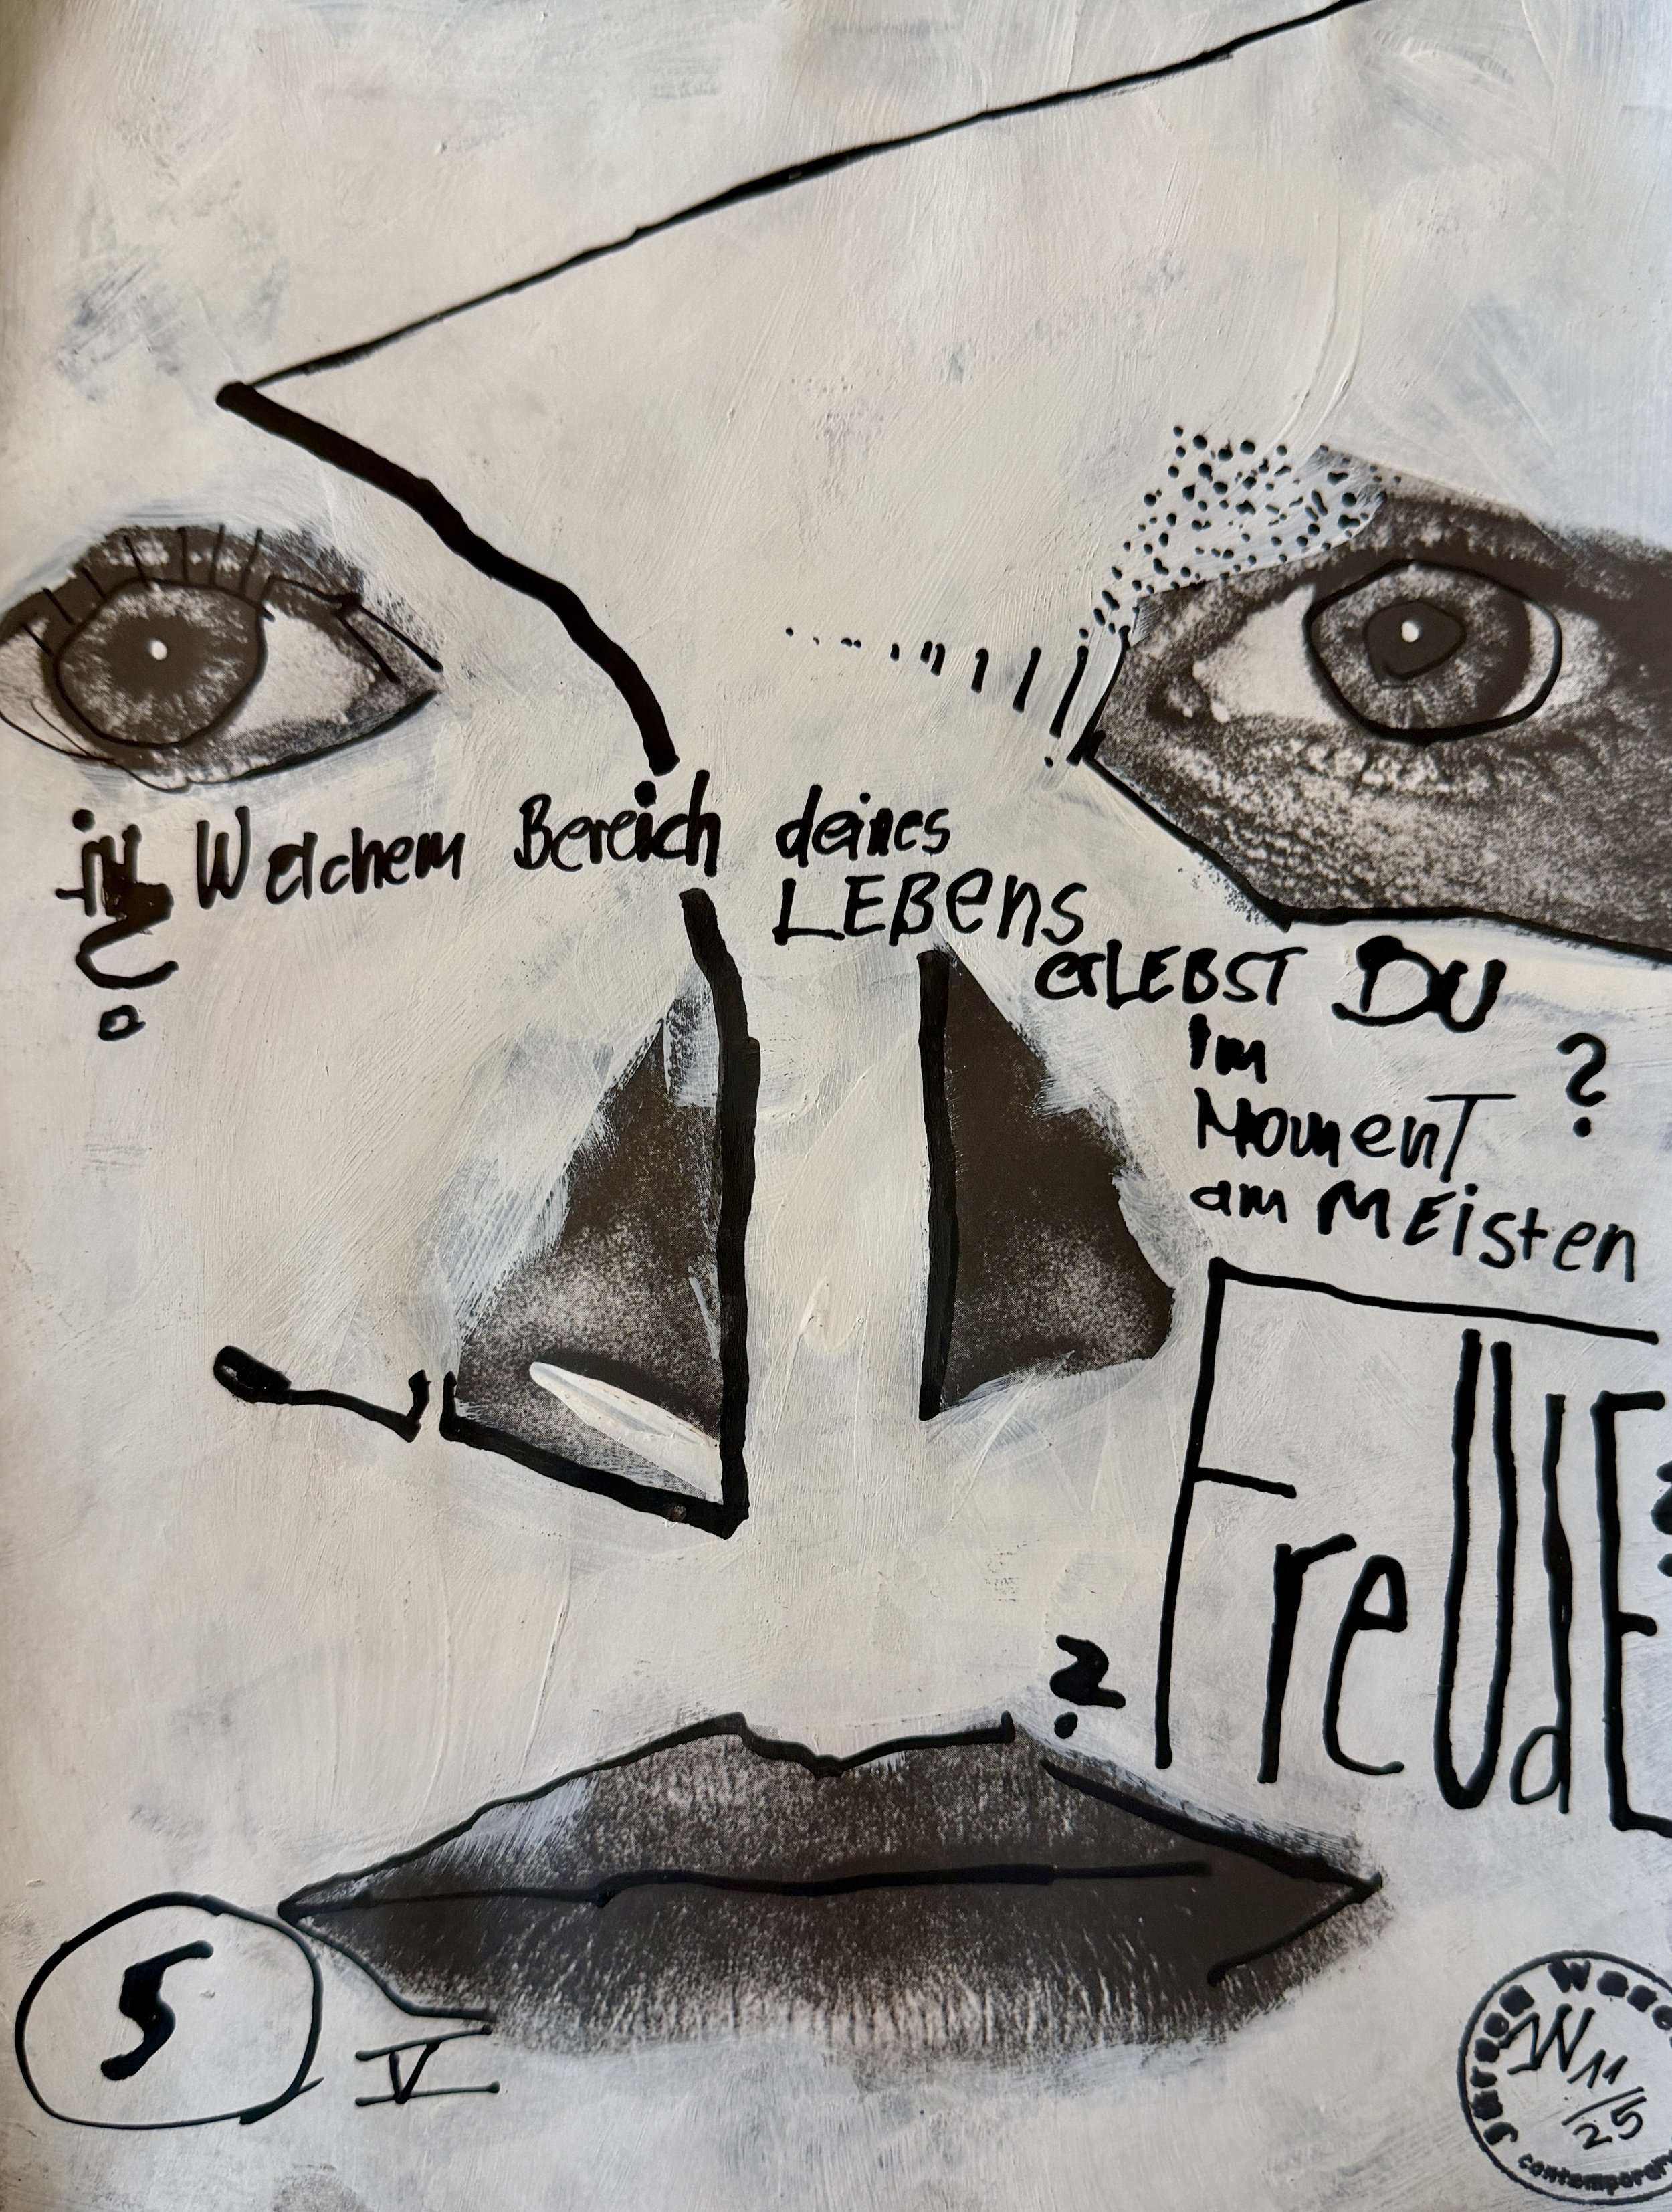 in Welchem Bereich deines
LEBens
erLEBST DU
im
Moment ?
am MEisten
FreUdE
?
5
V
Jürgen
JW 11/25